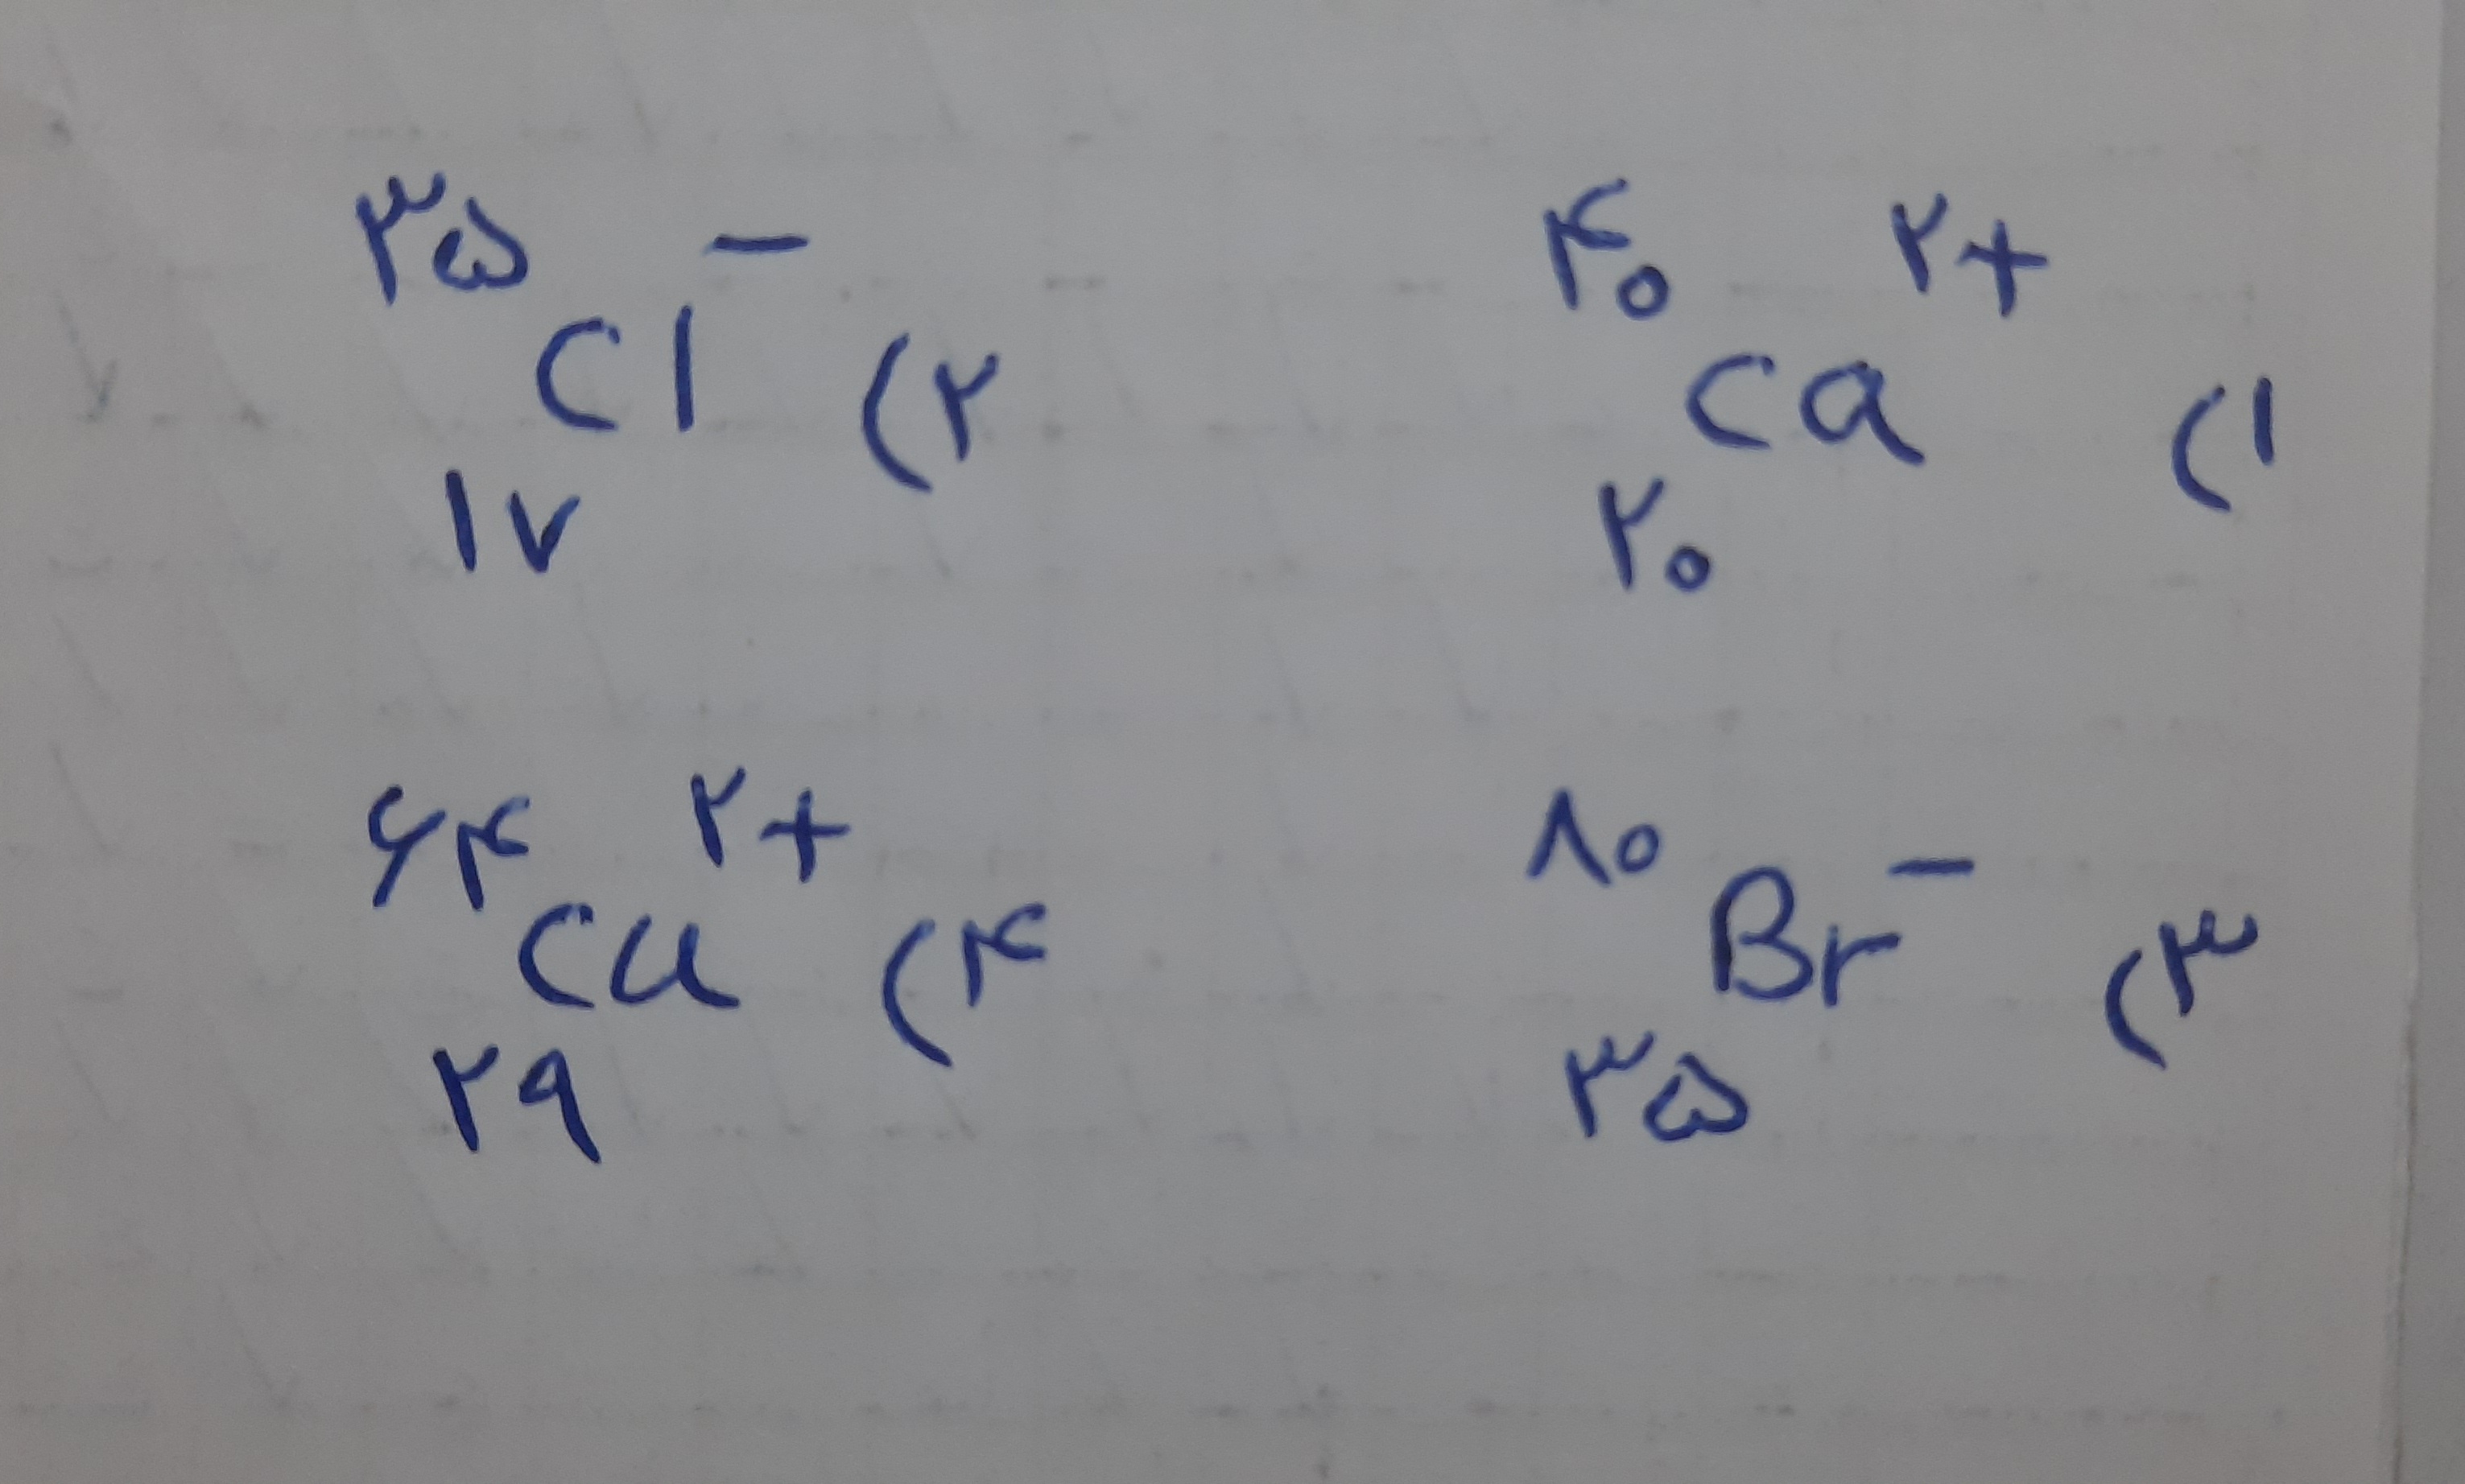 ۴۰ ۲+
Ca (۱
۲۰
۳۵ −
Cl (۲
۱۷
۸۰ −
Br (۳
۳۵
۶۴ ۲+
Cu (۴
۲۹